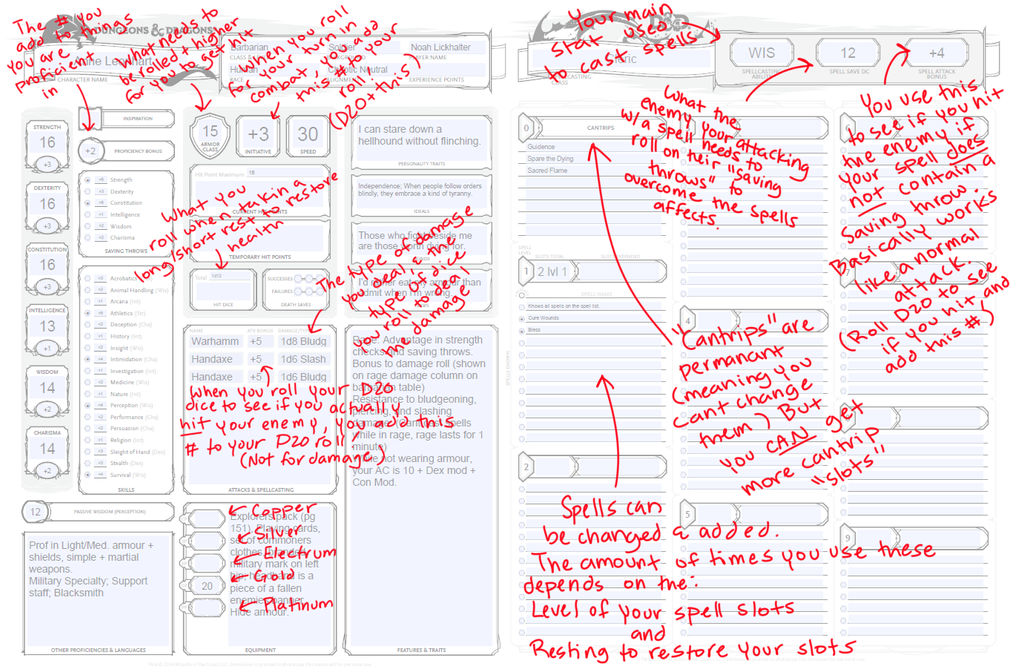 The # you
add to things
you are
proficient
in
What needs to
be rolled + higher
for you to get hit
when you roll
for your turn in
combat, you add
this # to your
roll!
(D20 + this)
DUNGEONS & DRAGONS
CHARACTER NAME
Barbarian
Soldier
Noah Lickhalter
Neutral
ALIGNMENT
EXPERIENCE POINTS
STRENGTH
16
+3
DEXTERITY
16
+3
CONSTITUTION
16
+3
INTELLIGENCE
13
WISDOM
14
+2
CHARISMA
14
+2
INSPIRATION
+2
PROFICIENCY BONUS
Strength
Dexterity
Constitution
Intelligence
Wisdom
Charisma
SAVING THROWS
Animal Handling (Wis)
Arcana (Int)
Athletics (Str)
Deception (Cha)
History (Int)
Insight (Wis)
Intimidation (Cha)
Investigation (Int)
Medicine (Wis)
Nature (Int)
Perception (Wis)
Performance (Cha)
Persuasion (Cha)
Religion (Int)
Sleight of Hand (Dex)
Stealth (Dex)
Survival (Wis)
SKILLS
12
PASSIVE WISDOM (PERCEPTION)
Prof in Light/Med. armour +
shields, simple + martial
weapons.
Military Specialty; Support
staff; Blacksmith
OTHER PROFICIENCIES & LANGUAGES
15
ARMOR
CLASS
+3
INITIATIVE
30
SPEED
Hit Point Maximum
CURRENT HIT POINTS
TEMPORARY HIT POINTS
What you
roll when takin a
long/short rest to restore
health
Total
HIT DICE
SUCCESSES
FAILURES
DEATH SAVES
The type of damage
you deal, & the
type of dice
you roll to deal
the damage
NAME
ATK BONUS
DAMAGE/TYPE
Warhamm +5 1d8 Bludg
Handaxe +5 1d6 Slash
Handaxe +5 1d6 Bludg
When you roll your D20
dice to see if you actually
hit your enemy, you add this
# to your D20 roll
(Not for damage)
ATTACKS & SPELLCASTING
Copper
Silver
Electrum
Gold
Platinum
20
Explorers pack (pg
151), Playing cards,
set of commoners
clothes
military mark on left
piece of a fallen
Hide armour.
EQUIPMENT
I can stare down a
hellhound without flinching.
PERSONALITY TRAITS
Independence; When people follow orders
blindly, they embrace a kind of tyranny.
IDEALS
Those who fight beside me
are those worth dying for.
I'd rather eat my armour than
admit when I'm wrong.
Rage: Advantage in strength
checks and saving throws.
Bonus to damage roll (shown
on rage damage column on
table)
Resistance to bludgeoning,
piercing, and slashing
while in rage, rage lasts for 1
minute)
not wearing armour,
your AC is 10 + Dex mod +
Con Mod.
FEATURES & TRAITS
Your main
stat used
to cast spells
WIS
SPELLCASTING
ABILITY
12
SPELL SAVE DC
+4
SPELL ATTACK
BONUS
What the
enemy your attacking
w/a spell needs to
roll on their "saving
throws" to
overcome the spells
affects.
You use this
to see if you hit
the enemy if
your spell does
not contain a
saving throw.
Basically works
like a normal
attack.
(Roll D20 to see
if you hit and
add this #)
0
CANTRIPS
Guidence
Spare the Dying
Sacred Flame
1
2 lvl 1
Knows all spells on the spell list.
Cure Wounds
Bless
2
4
5
7
9
"Cantrips" are
permanant
(meaning you
cant change
them) But
you CAN get
more cantrip
"slots"
Spells can
be changed & added.
The amount of times you use these
depends on the:
Level of your spell slots
and
Resting to restore your slots